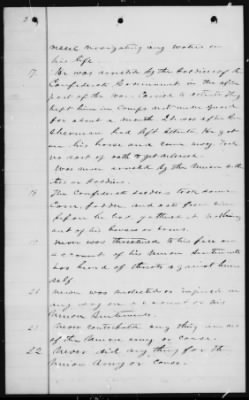 never navigating any waters in
his life.
17. He was arrested by the Soldiers of the
Confederate Government in the after
part of the war. Carried to Atlanta they
kept him in Camps and under guard
for about a month. It was after Gen
Sherman had left Atlanta. He got
on his horse and came away. Took
no sort of oath to get released.
Was never arrested by the Union
or Soldiers.
18 The Confederate Soldiers took some
Corn, fodder and oats from
before he had gathered it. nothing
out of his houses or barns.
19 never was threatened to his face on
account of his Union Sentiments
has heard of threats against him
self.
20 never was molested or injured in
any way on account of his
Union Sentiments.
21 Never contributed any thing in aid
of the Union army or cause.
22 Never did any thing for the
Union Army or Cause.